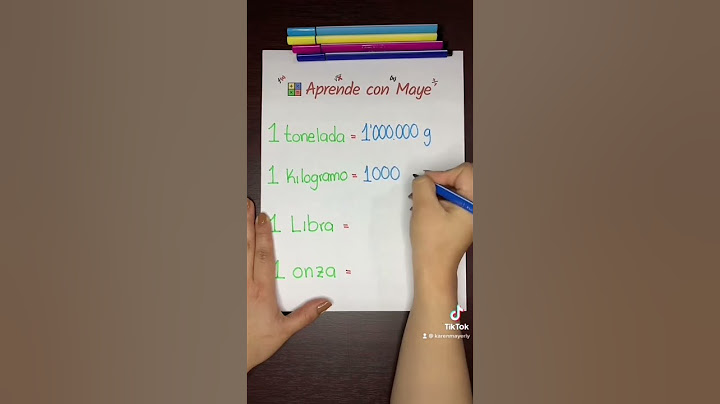 Aprende con Maye
1 tonelada = 1'000.000 g
1 Kilogramo = 1000
1 Libra =
1 onza =
TikTok
@karenmayerly